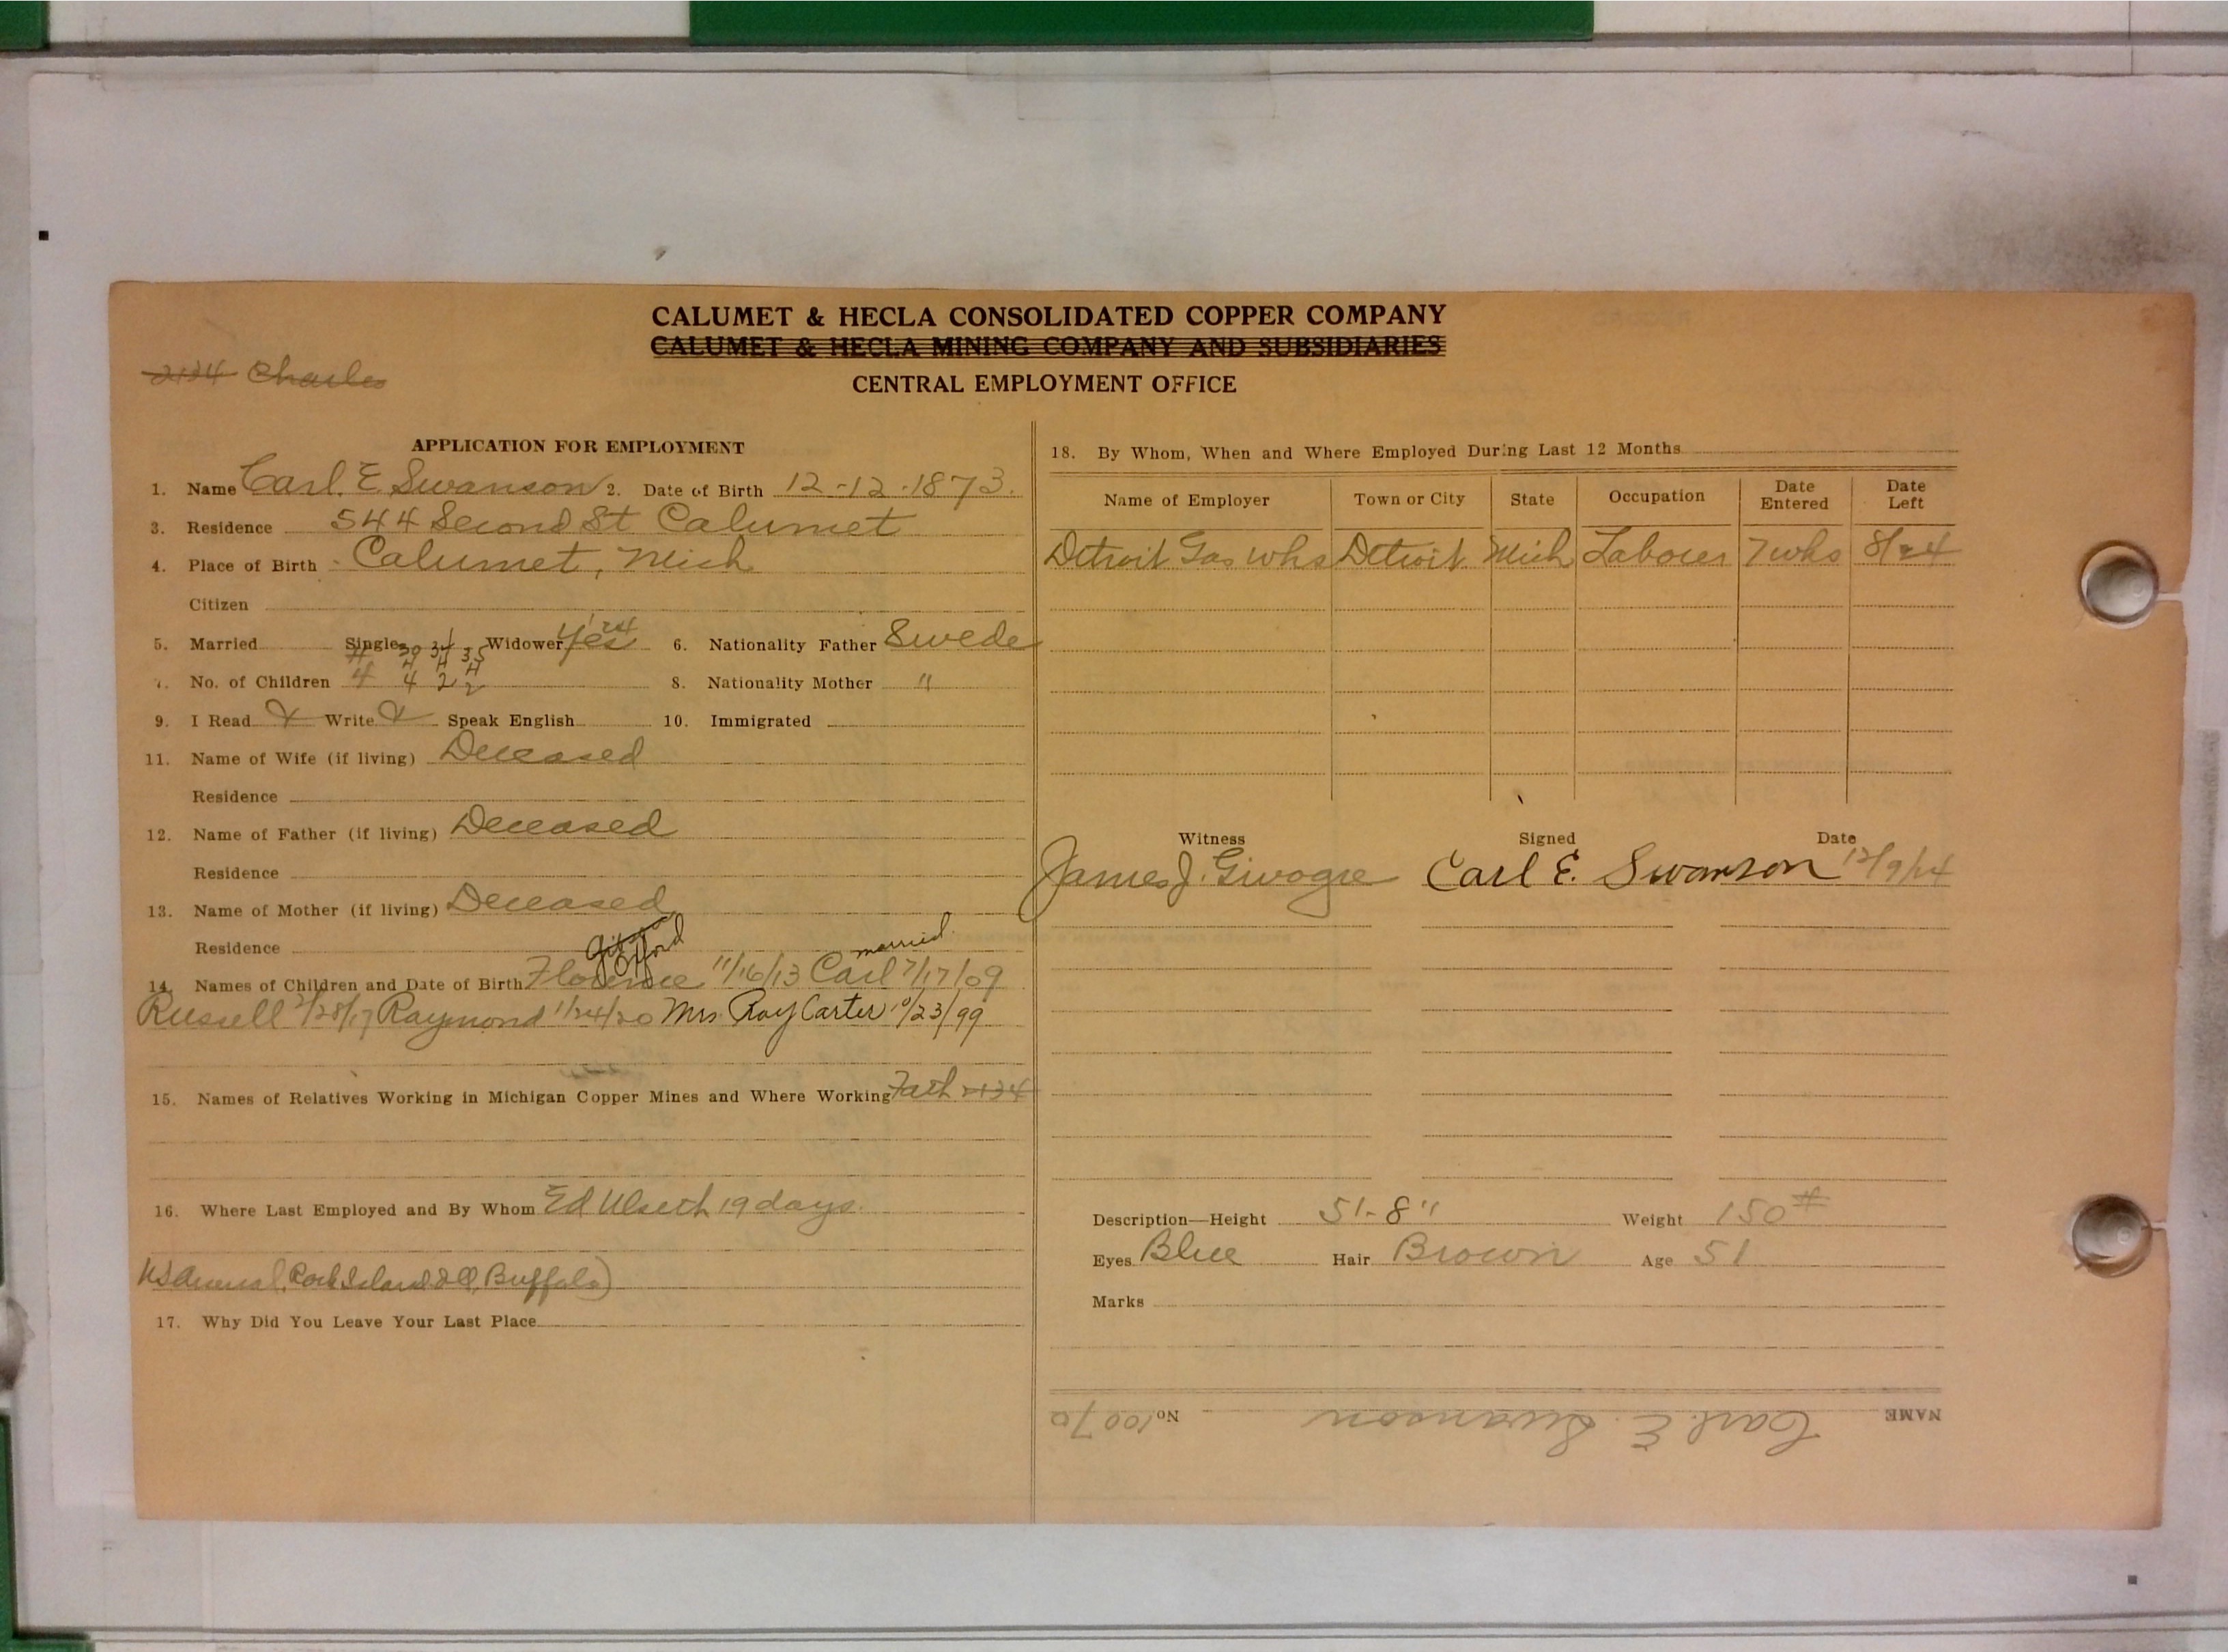 CALUMET & HECLA CONSOLIDATED COPPER COMPANY
CALUMET & HECLA MINING COMPANY AND SUBSIDIARIES
2124 Charles
CENTRAL EMPLOYMENT OFFICE
APPLICATION FOR EMPLOYMENT
1. Name Carl. E. Swanson 2. Date of Birth 12-12-1873.
3. Residence 544 Second St Calumet
4. Place of Birth Calumet, Mich
Citizen
5. Married Single Widower Yes 6. Nationality Father Swede
7. No. of Children 4 4 2 2 8. Nationality Mother "
9. I Read X Write X Speak English 10. Immigrated
11. Name of Wife (if living) Deceased
Residence
12. Name of Father (if living) Deceased
Residence
13. Name of Mother (if living) Deceased
Residence
married.
14. Names of Children and Date of Birth Florence 11/16/13 Carl 7/17/09
Russell 2/28/17 Raymond 1/24/20 Mrs. Ray Carter 10/23/99
15. Names of Relatives Working in Michigan Copper Mines and Where Working
16. Where Last Employed and By Whom Ed Ulseth 19 days.
US Arsenal, Rock Island Ill, Buffalo)
17. Why Did You Leave Your Last Place
18. By Whom, When and Where Employed During Last 12 Months
Name of Employer Town or City State Occupation Date Entered Date Left
Detroit Gas Whs Detroit Mich Laborer 7 wks 8/24
Witness Signed Date
James J. Givogre Carl E. Swanson 12/9/24
Description—Height 5'-8" Weight 150#
Eyes Blue Hair Brown Age 51
Marks
NAME Carl. E. Swanson No. 10070